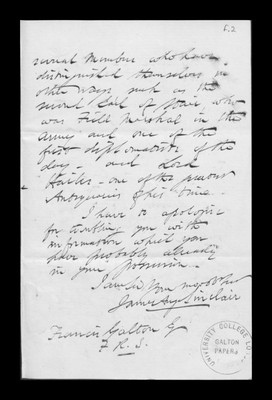 several Members who have
distinguished themselves in
other ways such as the
second Earl of Stair, who
was Field Marshal in the
Army and one of the
first diplomatists of the
day - and Lord
Hailes - one of the greatest
Antiquaries of his time.
I have to apologise
for troubling you with
information which you
have probably already
in your possession -
I am
James Sinclair
Francis Galton Esq
F.R.S.
UNIVERSITY COLLEGE LO
GALTON
PAPERS